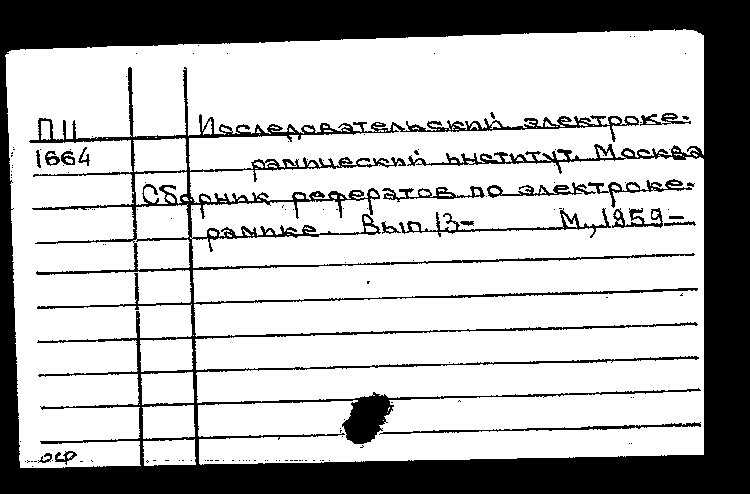 П II Исследовательский электроке-
1664 рамический институт. Москва
Сборник рефератов по электроке-
рамике. Вып. 13- М., 1959-
осф